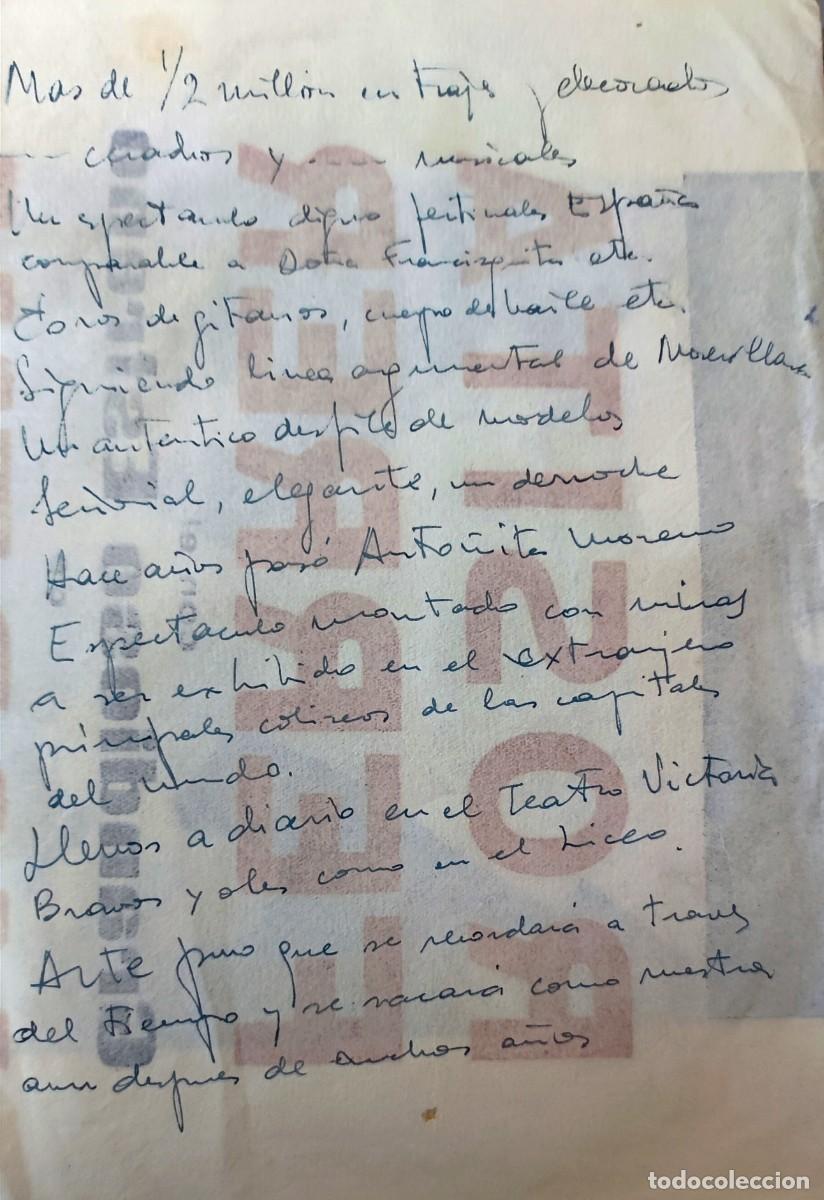 Mas de 1/2 millón en trajes y decorados
--- cuadros y ---- musicales
Un espectaculo digno festivales España
comparable a Doña Francisquita etc.
Coros de gitanos, cuerpo de baile etc.
Siguiendo linea argumental de
Un autentico desfile de modelos
Señorial, elegante, un derroche
Hace años pasó Antoñita Moreno
Espectaculo montado con miras
a ser exhibido en el extranjero
principales coliseos de las capitales
del mundo.
Llenos a diario en el Teatro Victoria
Bravos y oles como en el Liceo.
Arte puro que se recordará a traves
del tiempo y se sacará como muestra
aun despues de muchos años
todocoleccion